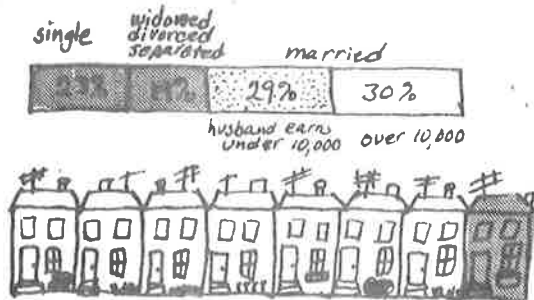 single
widowed
divorced
separated
married
29%
30%
husband earns
under 10,000
over 10,000